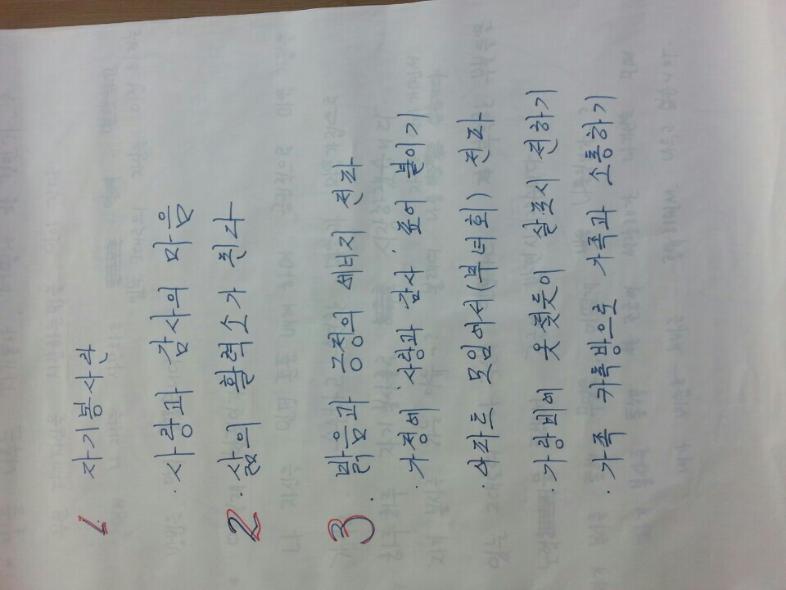 1. 자기봉사란
· 사랑과 감사의 마음
2. · 삶의 활력소가 된다
3. 밝음과 긍정의 에너지 전파
· 가정에 '사랑과 감사' 표어 붙이기
· 아파트 모임에서(부녀회) 전파
· 가랑비에 옷 젖듯이 살포시 전하기
· 가족 카톡방으로 가족과 소통하기